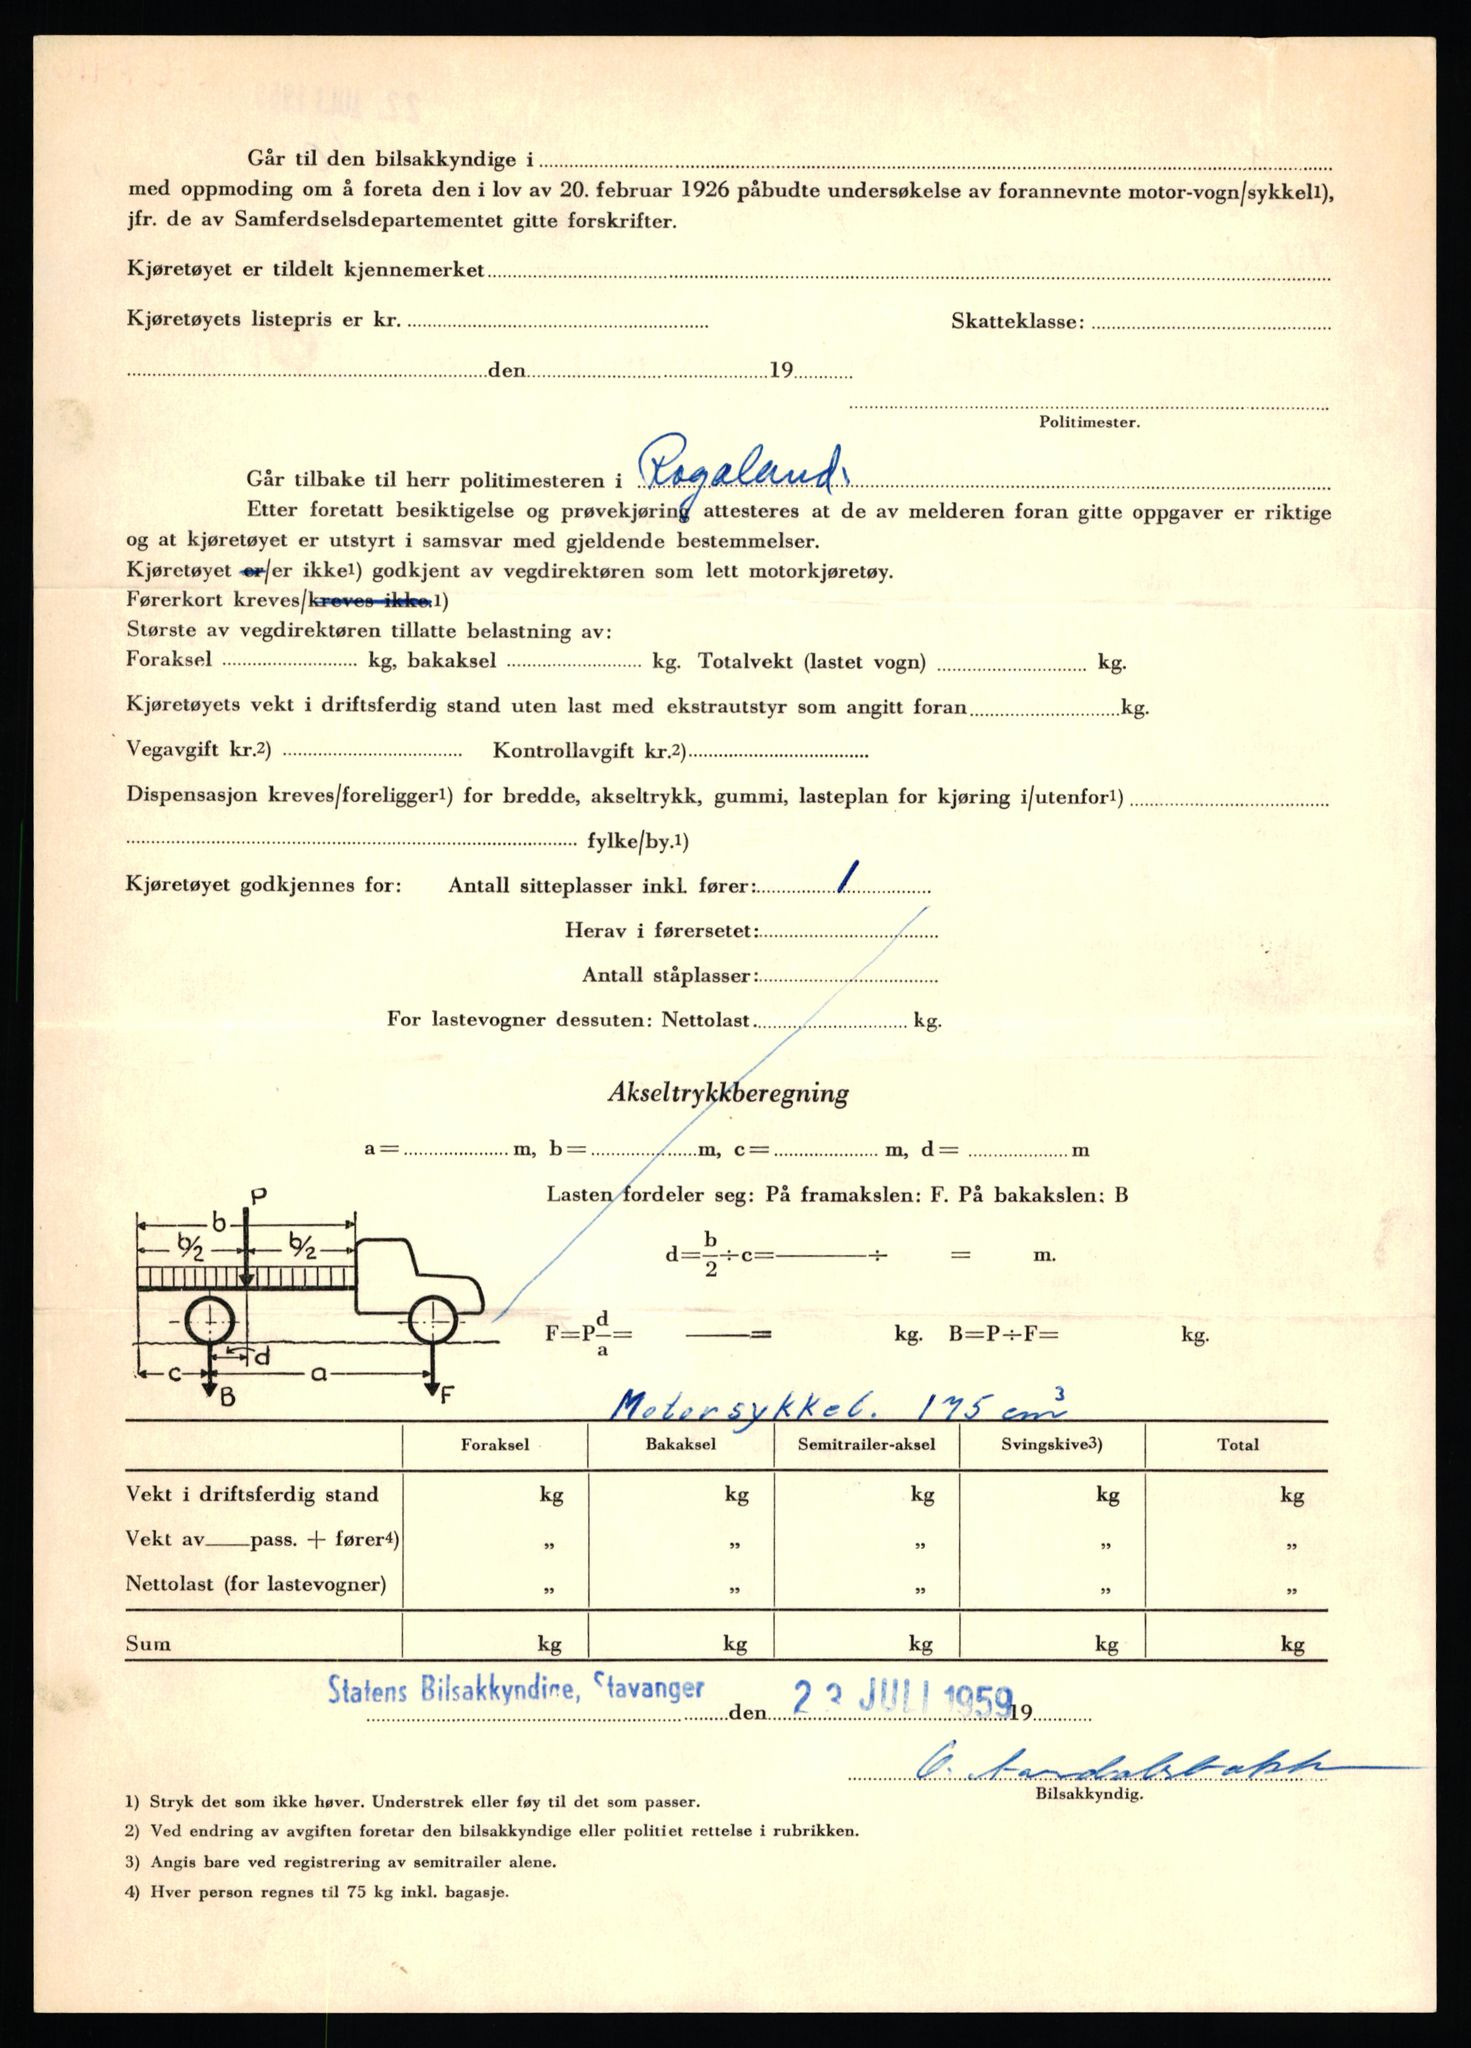 Går til den bilsakkyndige i
med oppmoding om å foreta den i lov av 20. februar 1926 påbudte undersøkelse av forannevnte motor-vogn/sykkel1),
jfr. de av Samferdselsdepartementet gitte forskrifter.
Kjøretøyet er tildelt kjennemerket
Kjøretøyets listepris er kr. Skatteklasse:
den 19
Politimester.
Går tilbake til herr politimesteren i Rogaland.
Etter foretatt besiktigelse og prøvekjøring attesteres at de av melderen foran gitte oppgaver er riktige
og at kjøretøyet er utstyrt i samsvar med gjeldende bestemmelser.
Kjøretøyet er/er ikke1) godkjent av vegdirektøren som lett motorkjøretøy.
Førerkort kreves/kreves ikke.1)
Største av vegdirektøren tillatte belastning av:
Foraksel kg, bakaksel kg. Totalvekt (lastet vogn) kg.
Kjøretøyets vekt i driftsferdig stand uten last med ekstrautstyr som angitt foran kg.
Vegavgift kr.2) Kontrollavgift kr.2)
Dispensasjon kreves/foreligger1) for bredde, akseltrykk, gummi, lasteplan for kjøring i/utenfor1)
fylke/by.1)
Kjøretøyet godkjennes for: Antall sitteplasser inkl. fører: 1
Herav i førersetet:
Antall ståplasser:
For lastevogner dessuten: Nettolast kg.
Akseltrykkberegning
a= m, b= m, c= m, d= m
Lasten fordeler seg: På framakslen: F. På bakakslen: B
P
b
b/2 b/2
d=b/2÷c= ÷ = m.
F=P d/a= = kg. B=P÷F= kg.
d
c a
B F
Motorsykkel. 175 cm³
Foraksel Bakaksel Semitrailer-aksel Svingskive3) Total
Vekt i driftsferdig stand kg kg kg kg kg
Vekt av pass. + fører4) „ „ „ „ „
Nettolast (for lastevogner) „ „ „ „ „
Sum kg kg kg kg kg
Statens Bilsakkyndige, Stavanger den 23 JULI 1959 19
Bilsakkyndig.
1) Stryk det som ikke høver. Understrek eller føy til det som passer.
2) Ved endring av avgiften foretar den bilsakkyndige eller politiet rettelse i rubrikken.
3) Angis bare ved registrering av semitrailer alene.
4) Hver person regnes til 75 kg inkl. bagasje.